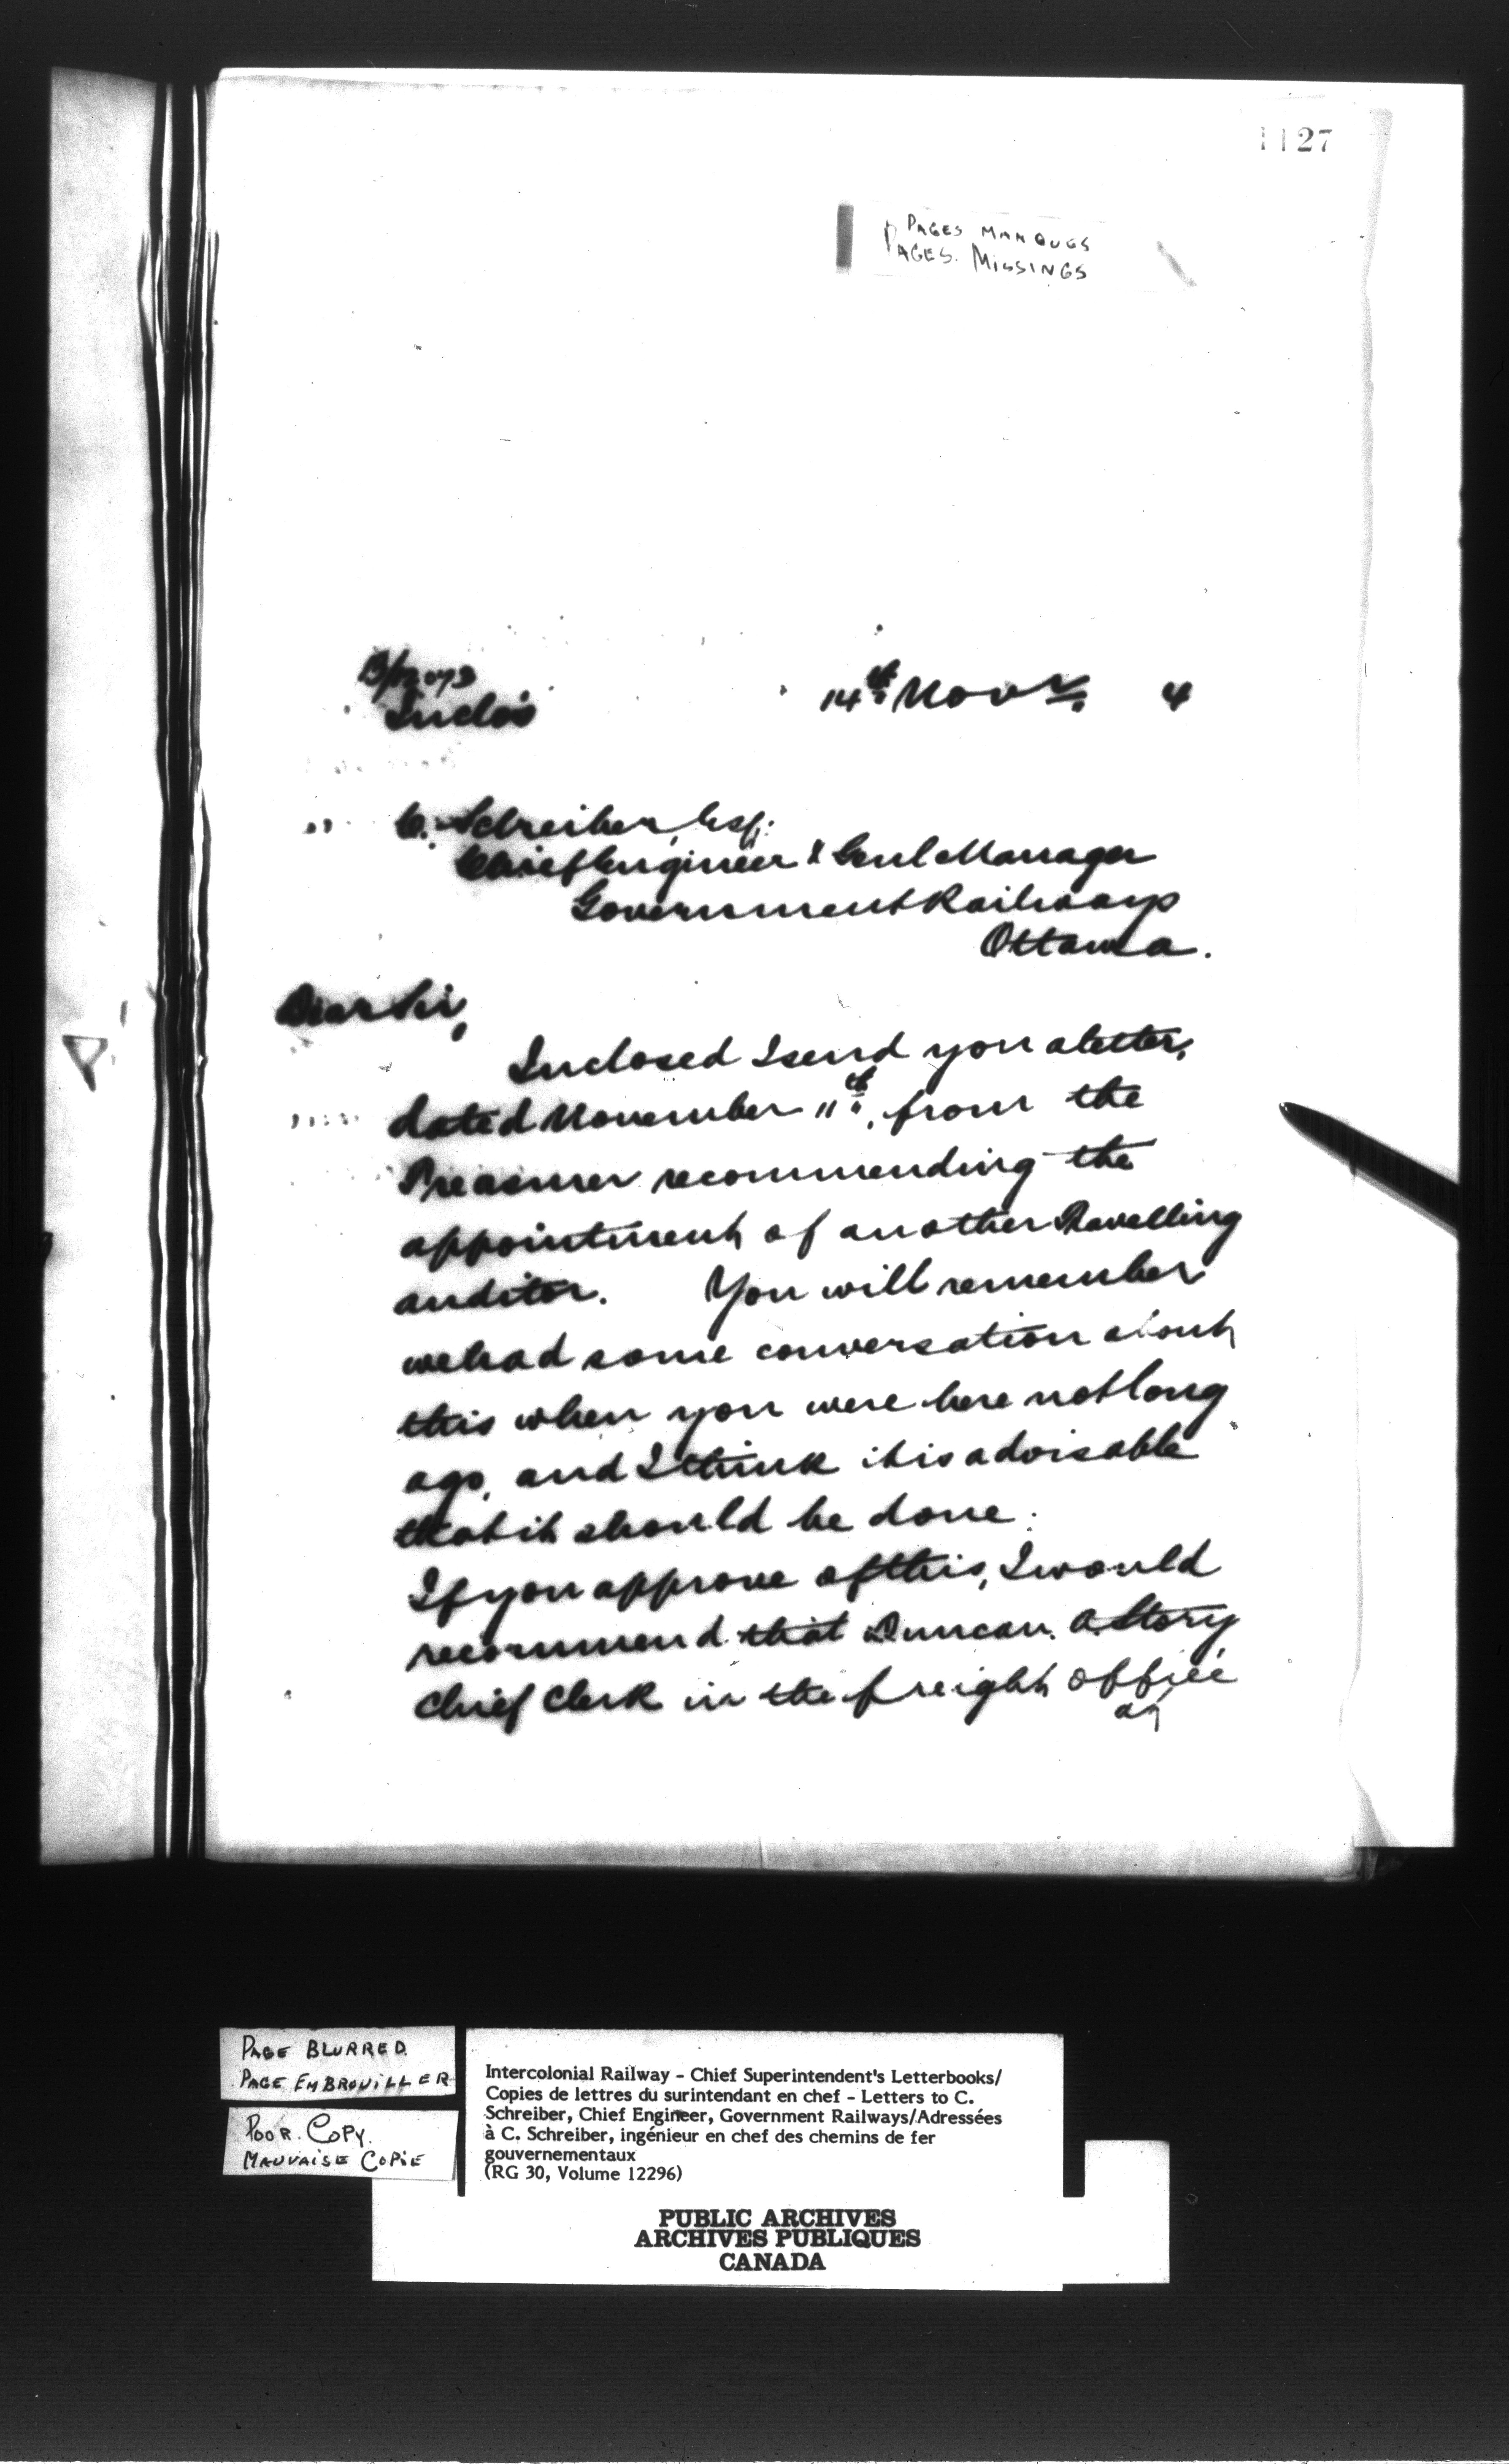 1127
PAGES MANQUES
PAGES. MISSINGS
Inclos
14th Novr. 4
C. Schreiber, Esq.
Chief Engineer & Genl Manager
Government Railways
Ottawa.
Dear Sir,
Inclosed I send you a letter,
dated November 11th, from the
Treasurer recommending the
appointment of another Travelling
auditor. You will remember
we had some conversation about
this when you were here not long
ago, and I think it is advisable
that it should be done.
If you approve of this, I would
recommend that Duncan A. Story
Chief Clerk in the freight office
PAGE BLURRED.
PAGE EMBROUILLER
POOR. COPY.
MAUVAISE COPIE
Intercolonial Railway - Chief Superintendent's Letterbooks/
Copies de lettres du surintendant en chef - Letters to C.
Schreiber, Chief Engineer, Government Railways/Adressées
à C. Schreiber, ingénieur en chef des chemins de fer
gouvernementaux
(RG 30, Volume 12296)
PUBLIC ARCHIVES
ARCHIVES PUBLIQUES
CANADA